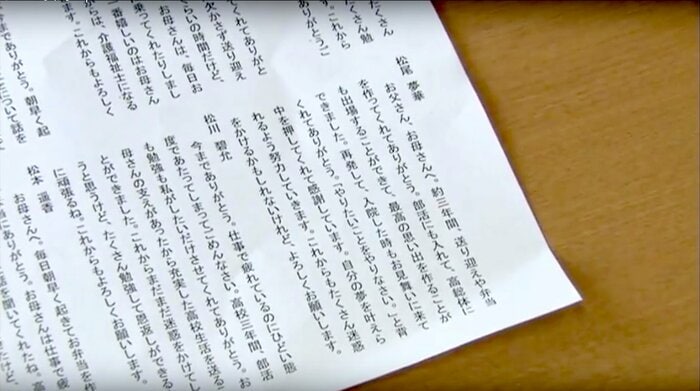 たくさん
たくさん勉
。これから
ありがとうご
くてありがと
欠かさず送り迎え
らいの時間だけど、
お母さんは、毎日お
乗ってくれたりしまし
一番嬉しいのはお母さん
は、介護福祉士になる
ます。これからもよろしく
までありがとう。朝早く起
について話を
松尾 夢華
お父さん、お母さんへ。約三年間、送り迎えや弁当
を作ってくれてありがとう。部活にも入れて、高総体に
も出場することができて、最高の思い出を作ることが
できました。再発して、入院した時もお見舞いに来て
くれてありがとう。「やりたいことをやりなさい。」と背
中を押してくれて感謝しています。自分の夢を叶えら
れるよう努力していきます。これからもたくさん迷惑
をかけるかもしれないけれど、よろしくお願いします。
松川 碧允
今までありがとう。仕事で疲れているのにひどい態
度であたってしまってごめんなさい。高校三年間、部活
も勉強も私がしたいだけさせてくれてありがとう。お
母さんの支えがあったから充実した高校生活を送るこ
とができました。これからまだまだ迷惑をかけてし
うと思うけど、たくさん勉強して恩返しができる
に頑張るね。これからもよろしくお願いします。
松本 遥香
お母さんへ。毎日朝早く起きてお弁当を作
当にありがとう。お母さんは仕事で疲
話を聞いてくれたね。